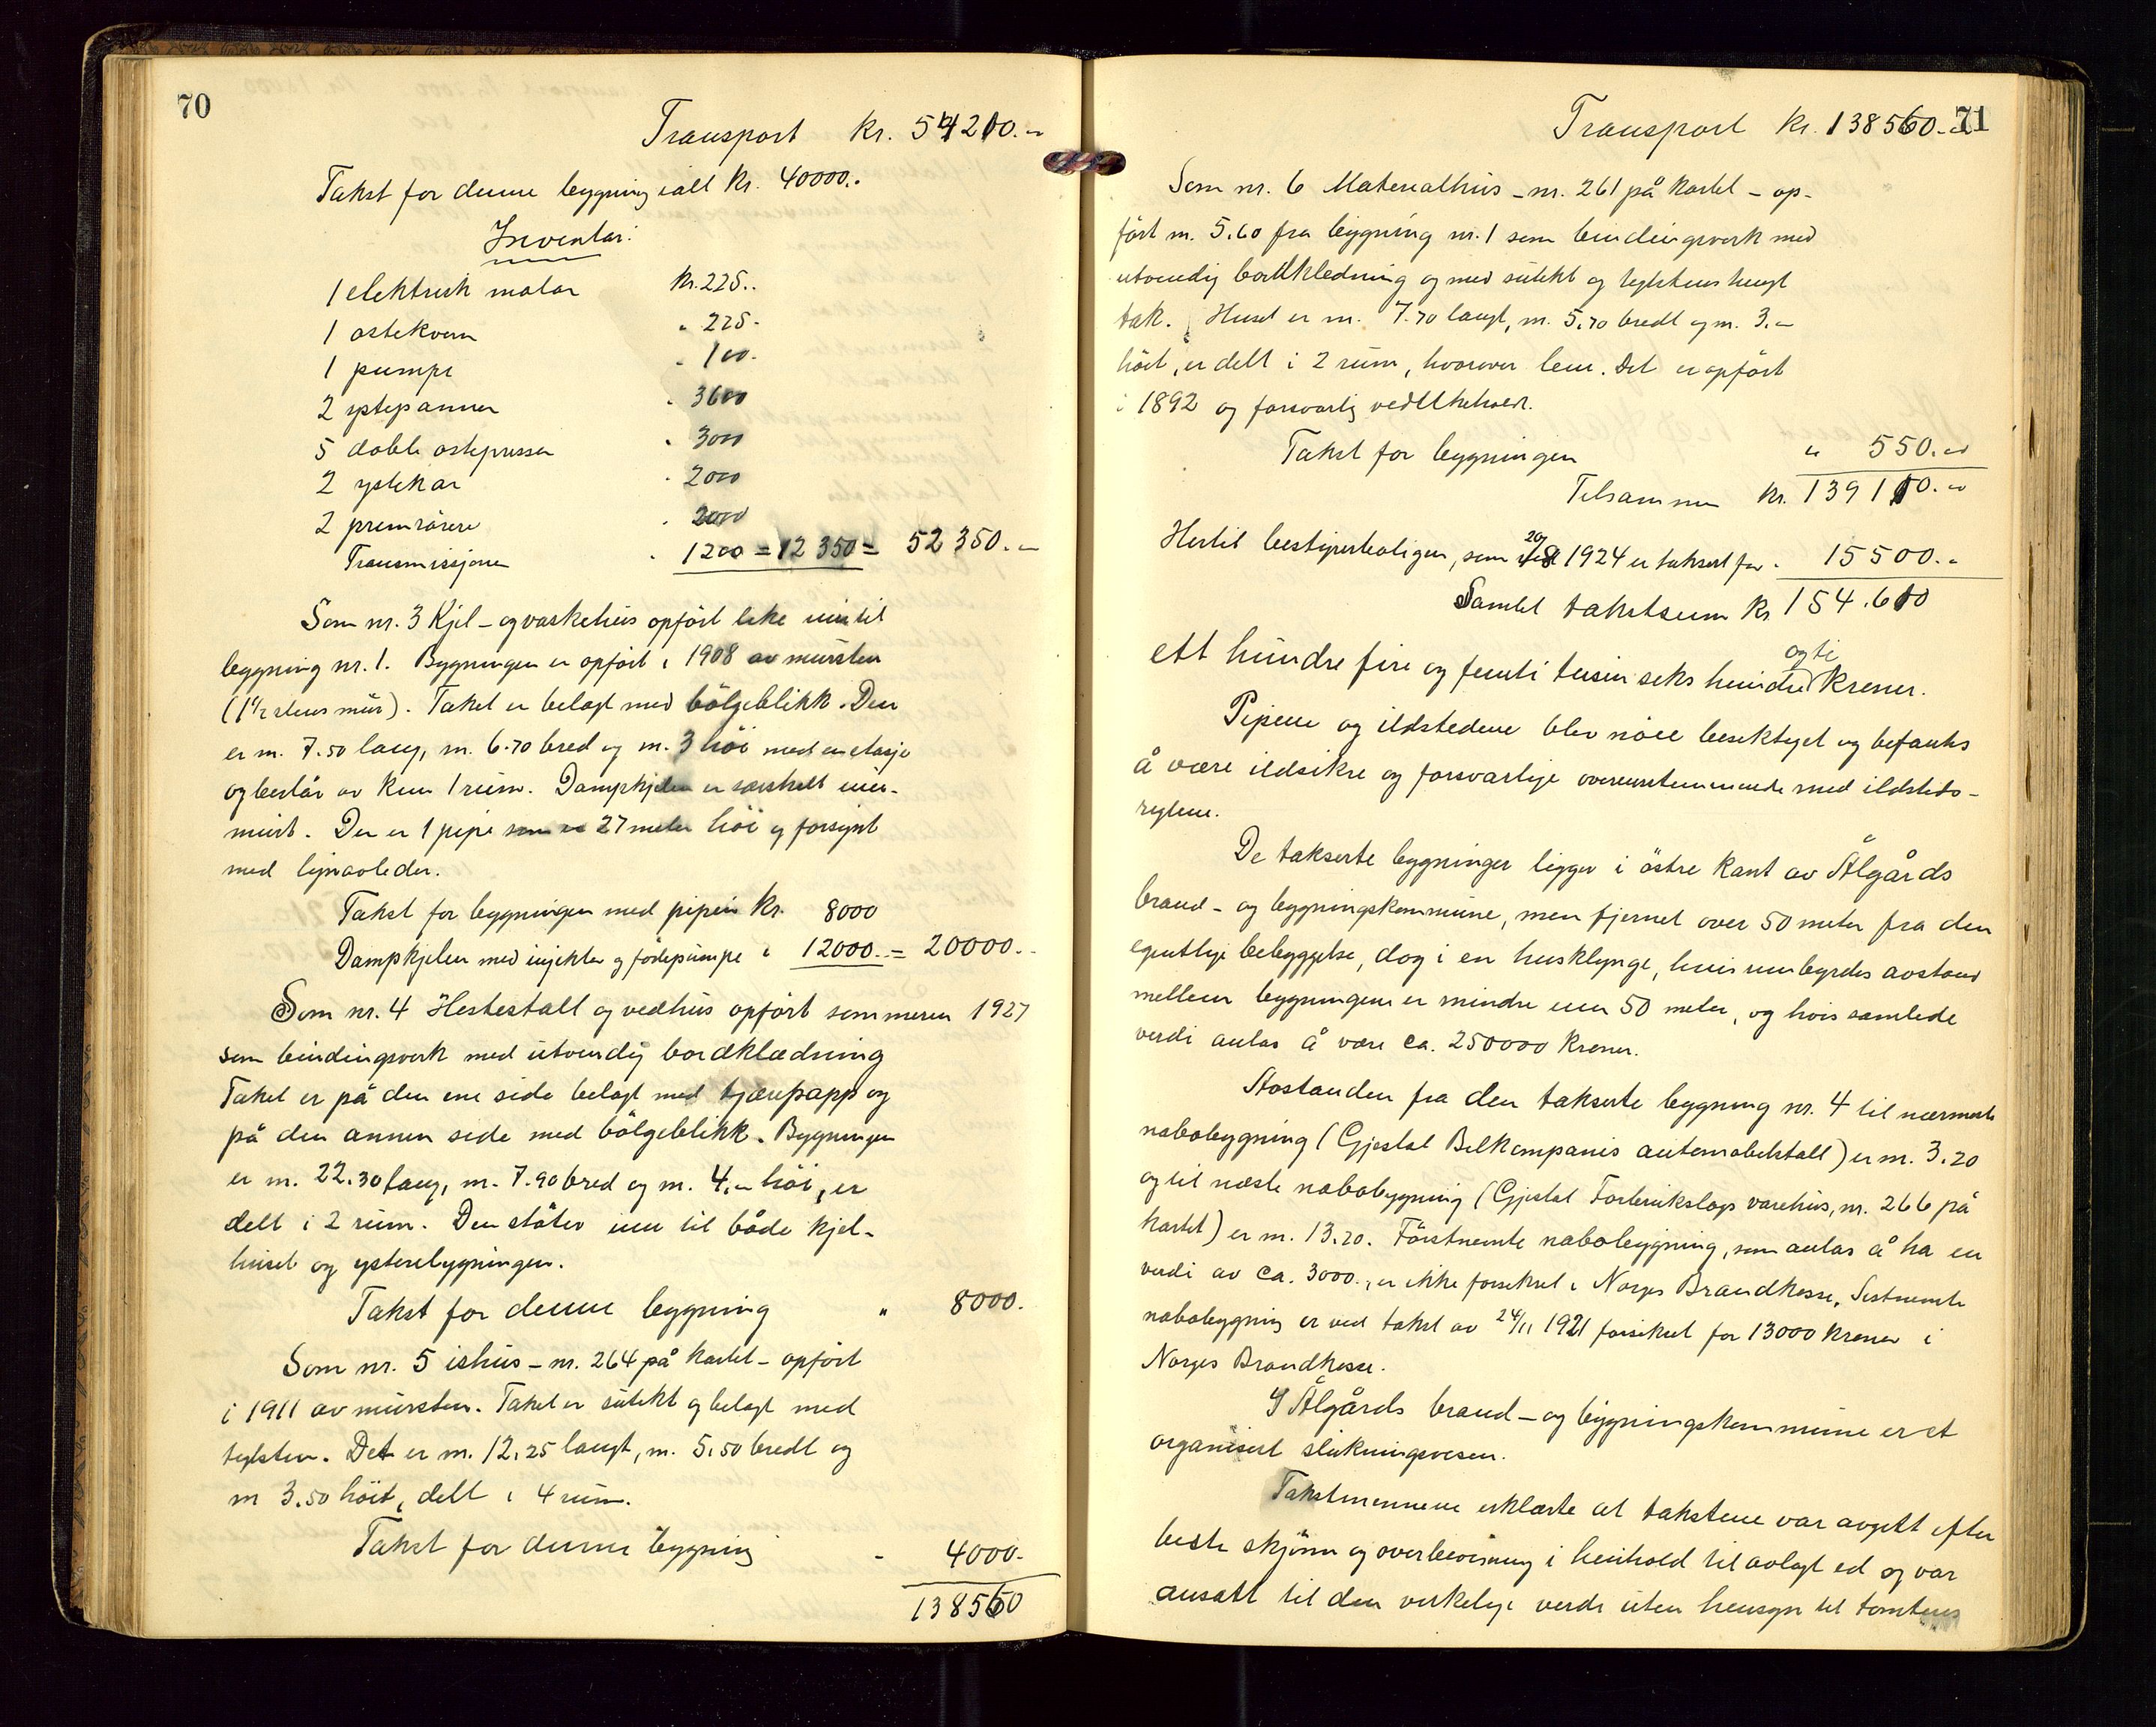 70
Transport kr. 54210.-
Takst for denne bygning ialt kr. 40000.-
Inventar:
1 elektrisk motor kr. 225.-
1 ostekvern " 225.-
1 pumpe " 100.-
2 ystepanner " 3600
5 doble ostepresser " 3000
2 ystekar " 2000
2 primrörere " 2000
Transmissjoner " 1200 = 12350 = 52350.-
Som nr. 3 Kjel- og vaskehus opfört like inn til
bygning nr. 1. Bygningen er opfört i 1908 av mursten
(1 1/2 stens mur). Taket er belagt med bölgeblikk. Den
er m. 7.50 lang, m. 6.70 bred og m. 3 höi med en etasje
og består av kun 1 rum. Dampkjelen er særskilt inn-
murt. Der er 1 pipe som er 27 meter höi og forsynt
med lynavleder.
Takst for bygningen med pipen kr. 8000
Dampkjelen med injektor og födepumpe " 12000.- = 20000.-
Som nr. 4 Hestestall og vedhus opfört sommeren 1927
som bindingsverk med utvendig bordklædning
Taket er på den ene side belagt med tjærepapp og
på den annen side med bölgeblikk. Bygningen
er m. 22.30 lang, m. 7.90 bred og m. 4.- höi, er
delt i 2 rum. Den stöter inn til både kjel-
huset og ysteribygningen.
Takst for denne bygning " 8000.
Som nr. 5 ishus - nr. 264 på kartet - opfört
i 1911 av mursten. Taket er sutekt og belagt med
teglsten. Det er m. 12.25 langt, m. 5.50 bredt og
m 3.50 höit, delt i 4 rum.
Takst for denne bygning - 4000.-
138560
71
Transport kr. 138560.-
Som nr. 6 Materialhus - nr. 261 på kartet - op-
fört m. 5.60 fra bygning nr. 1 som bindingsverk med
utvendig bordkledning og med sutekt og teglstens hengt
tak. Huset er m. 7.70 langt, m. 5.70 bredt og m. 3.-
höit, er delt i 2 rum, hvorover lem. Det er opfört
i 1892 og forsvarlig vedlikeholdt.
Takst for bygningen " 550.-
Tilsammen kr. 139110.-
Hertil bestyrerboligen, som 20/8 1924 er taksert for " 15500.-
Samlet takstsum kr 154.610
ett hundre fire og femti tusin seks hundre og ti kroner.
Pipene og ildstedene blev nöie besiktiget og befantes
å være ildsikre og forsvarlige overensstemmende med ildsteds-
reglene.
De takserte bygninger ligger i östre kant av Ålgårds
brand- og bygningskommune, men fjernet over 50 meter fra den
egentlige bebyggelse, dog i en husklynge, hvis innbyrdes avstand
mellem bygningene er mindre enn 50 meter, og hvis samlede
verdi antas å være ca. 250000 kroner.
Avstanden fra den takserte bygning nr. 4 til nærmeste
nabobygning (Gjestal Bilkompanis automobilstall) er m. 3.20
og til næste nabobygning (Gjestal Forbrukslags varehus, nr. 266 på
kartet) er m. 13.20. Förstnemte nabobygning, som antas å ha en
verdi av ca. 3000.-, er ikke forsikret i Norges Brandkasse. Sistnemte
nabobygning er ved takst av 24/11 1921 forsikret for 13000 kroner i
Norges Brandkasse.
I Ålgårds brand- og bygningskommune er et
organisert slukningsvesen.
Takstmennene erklærte at takstene var avgitt efter
beste skjönn og overbevisning i henhold til avlagt ed og var
ansatt til den virkelige verdi uten hensyn til tomtens